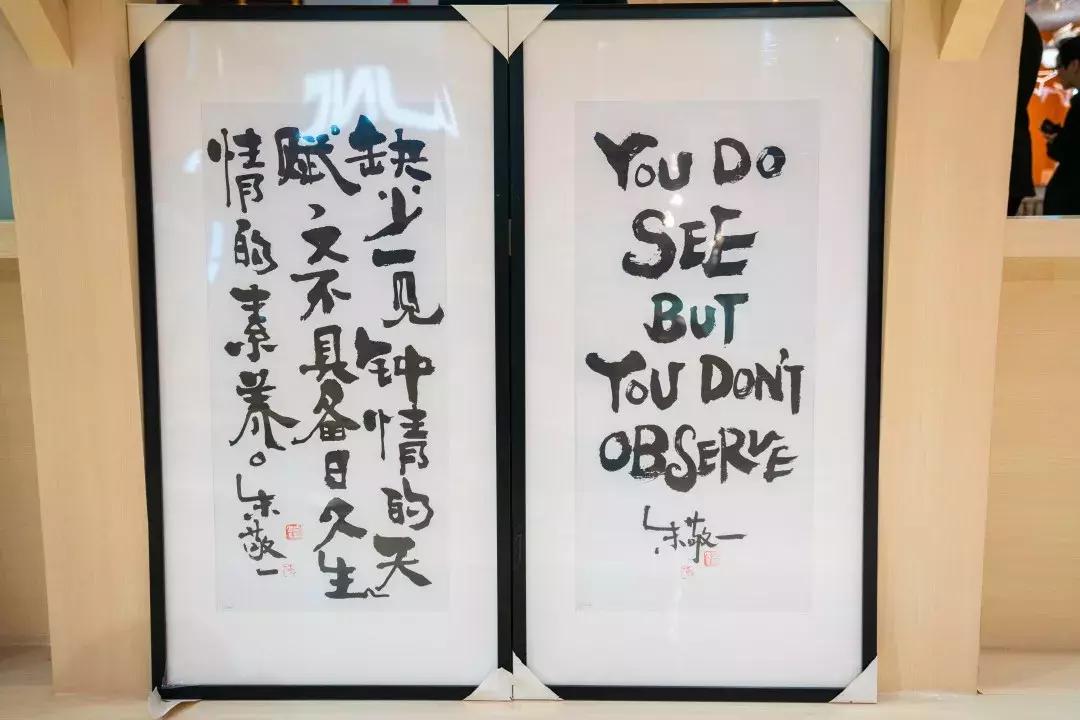 缺少一见钟情的天
赋,又不具备日久生
情的素养。朱敬一
YOU DO
SEE
BUT
YOU DON'T
OBSERVE
朱敬一